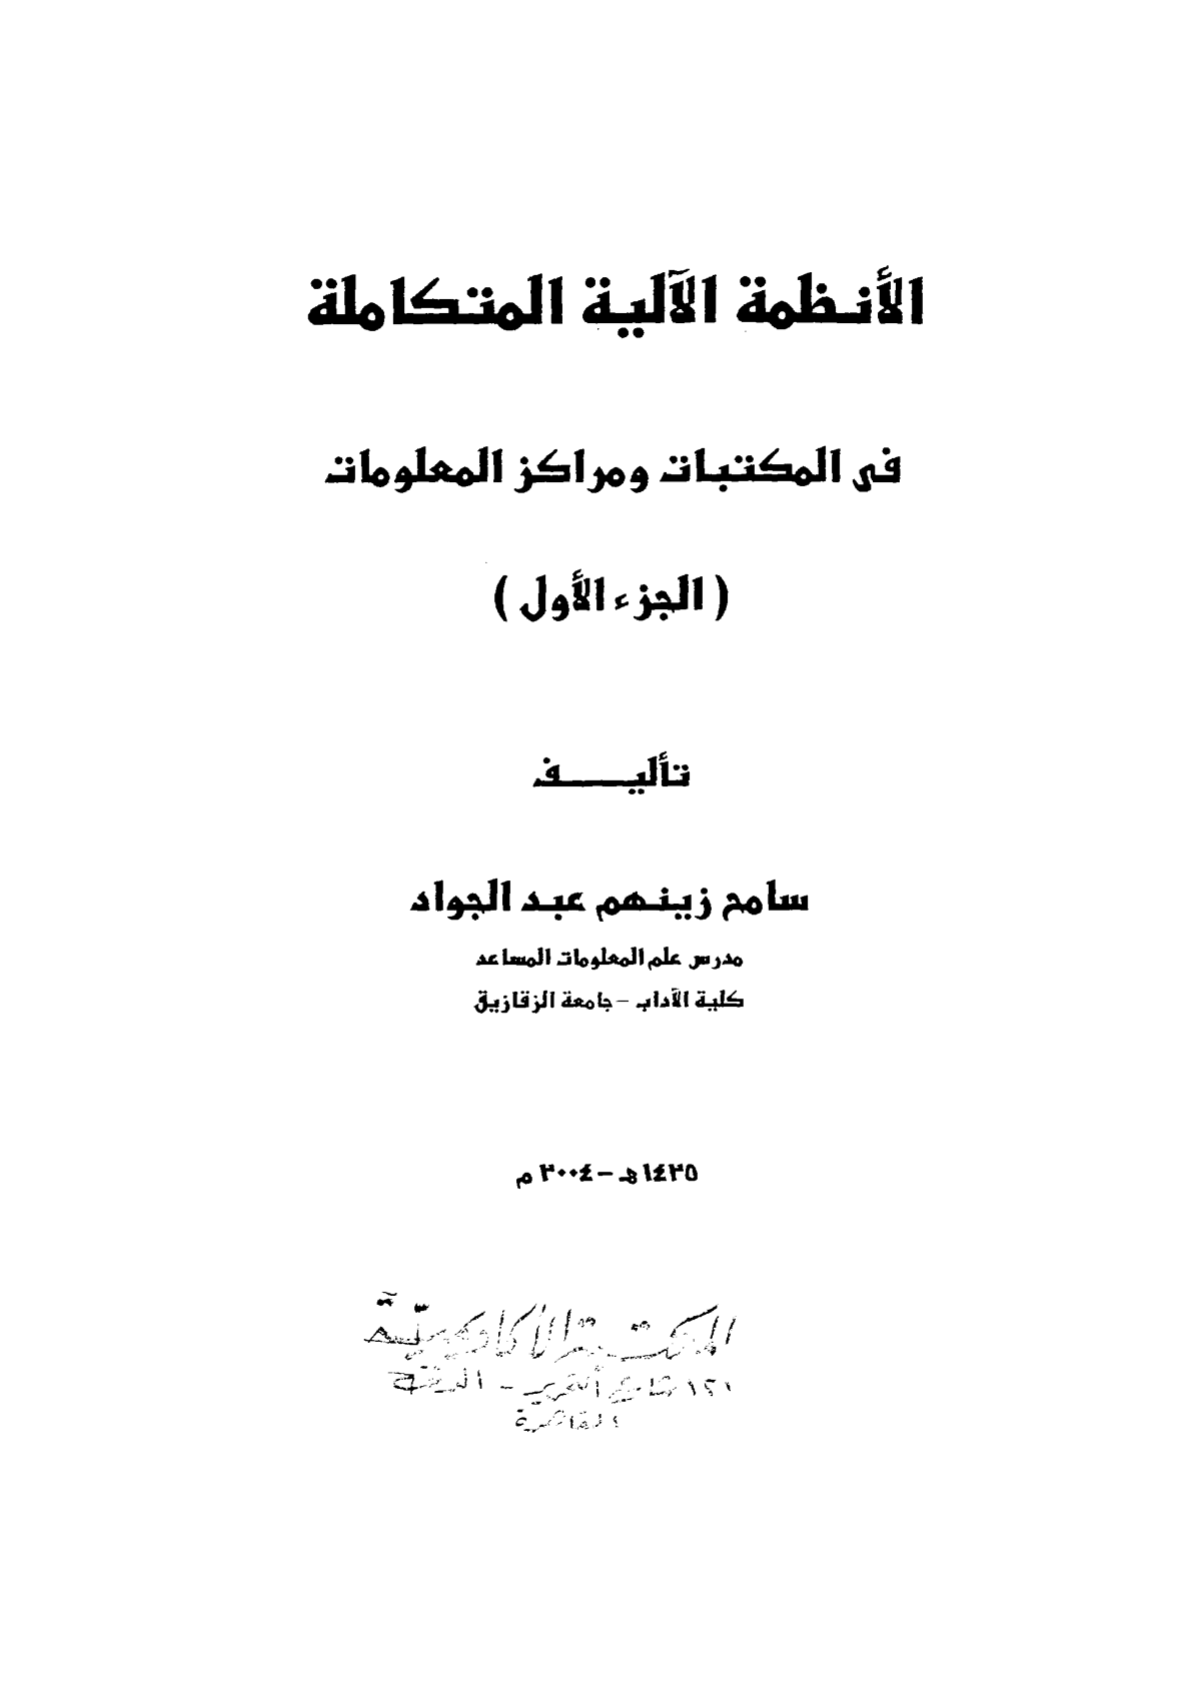 الأنظمة الآلية المتكاملة
فى المكتبات ومراكز المعلومات
( الجزء الأول )
تأليـــــف
سامح زينهم عبد الجواد
مدرس علم المعلومات المساعد
كلية الآداب - جامعة الزقازيق
١٤٢٥هـ - ٢٠٠٤ م
المكتبة الأكاديمية
١٢١ شارع التحرير - الدقى
القاهرة